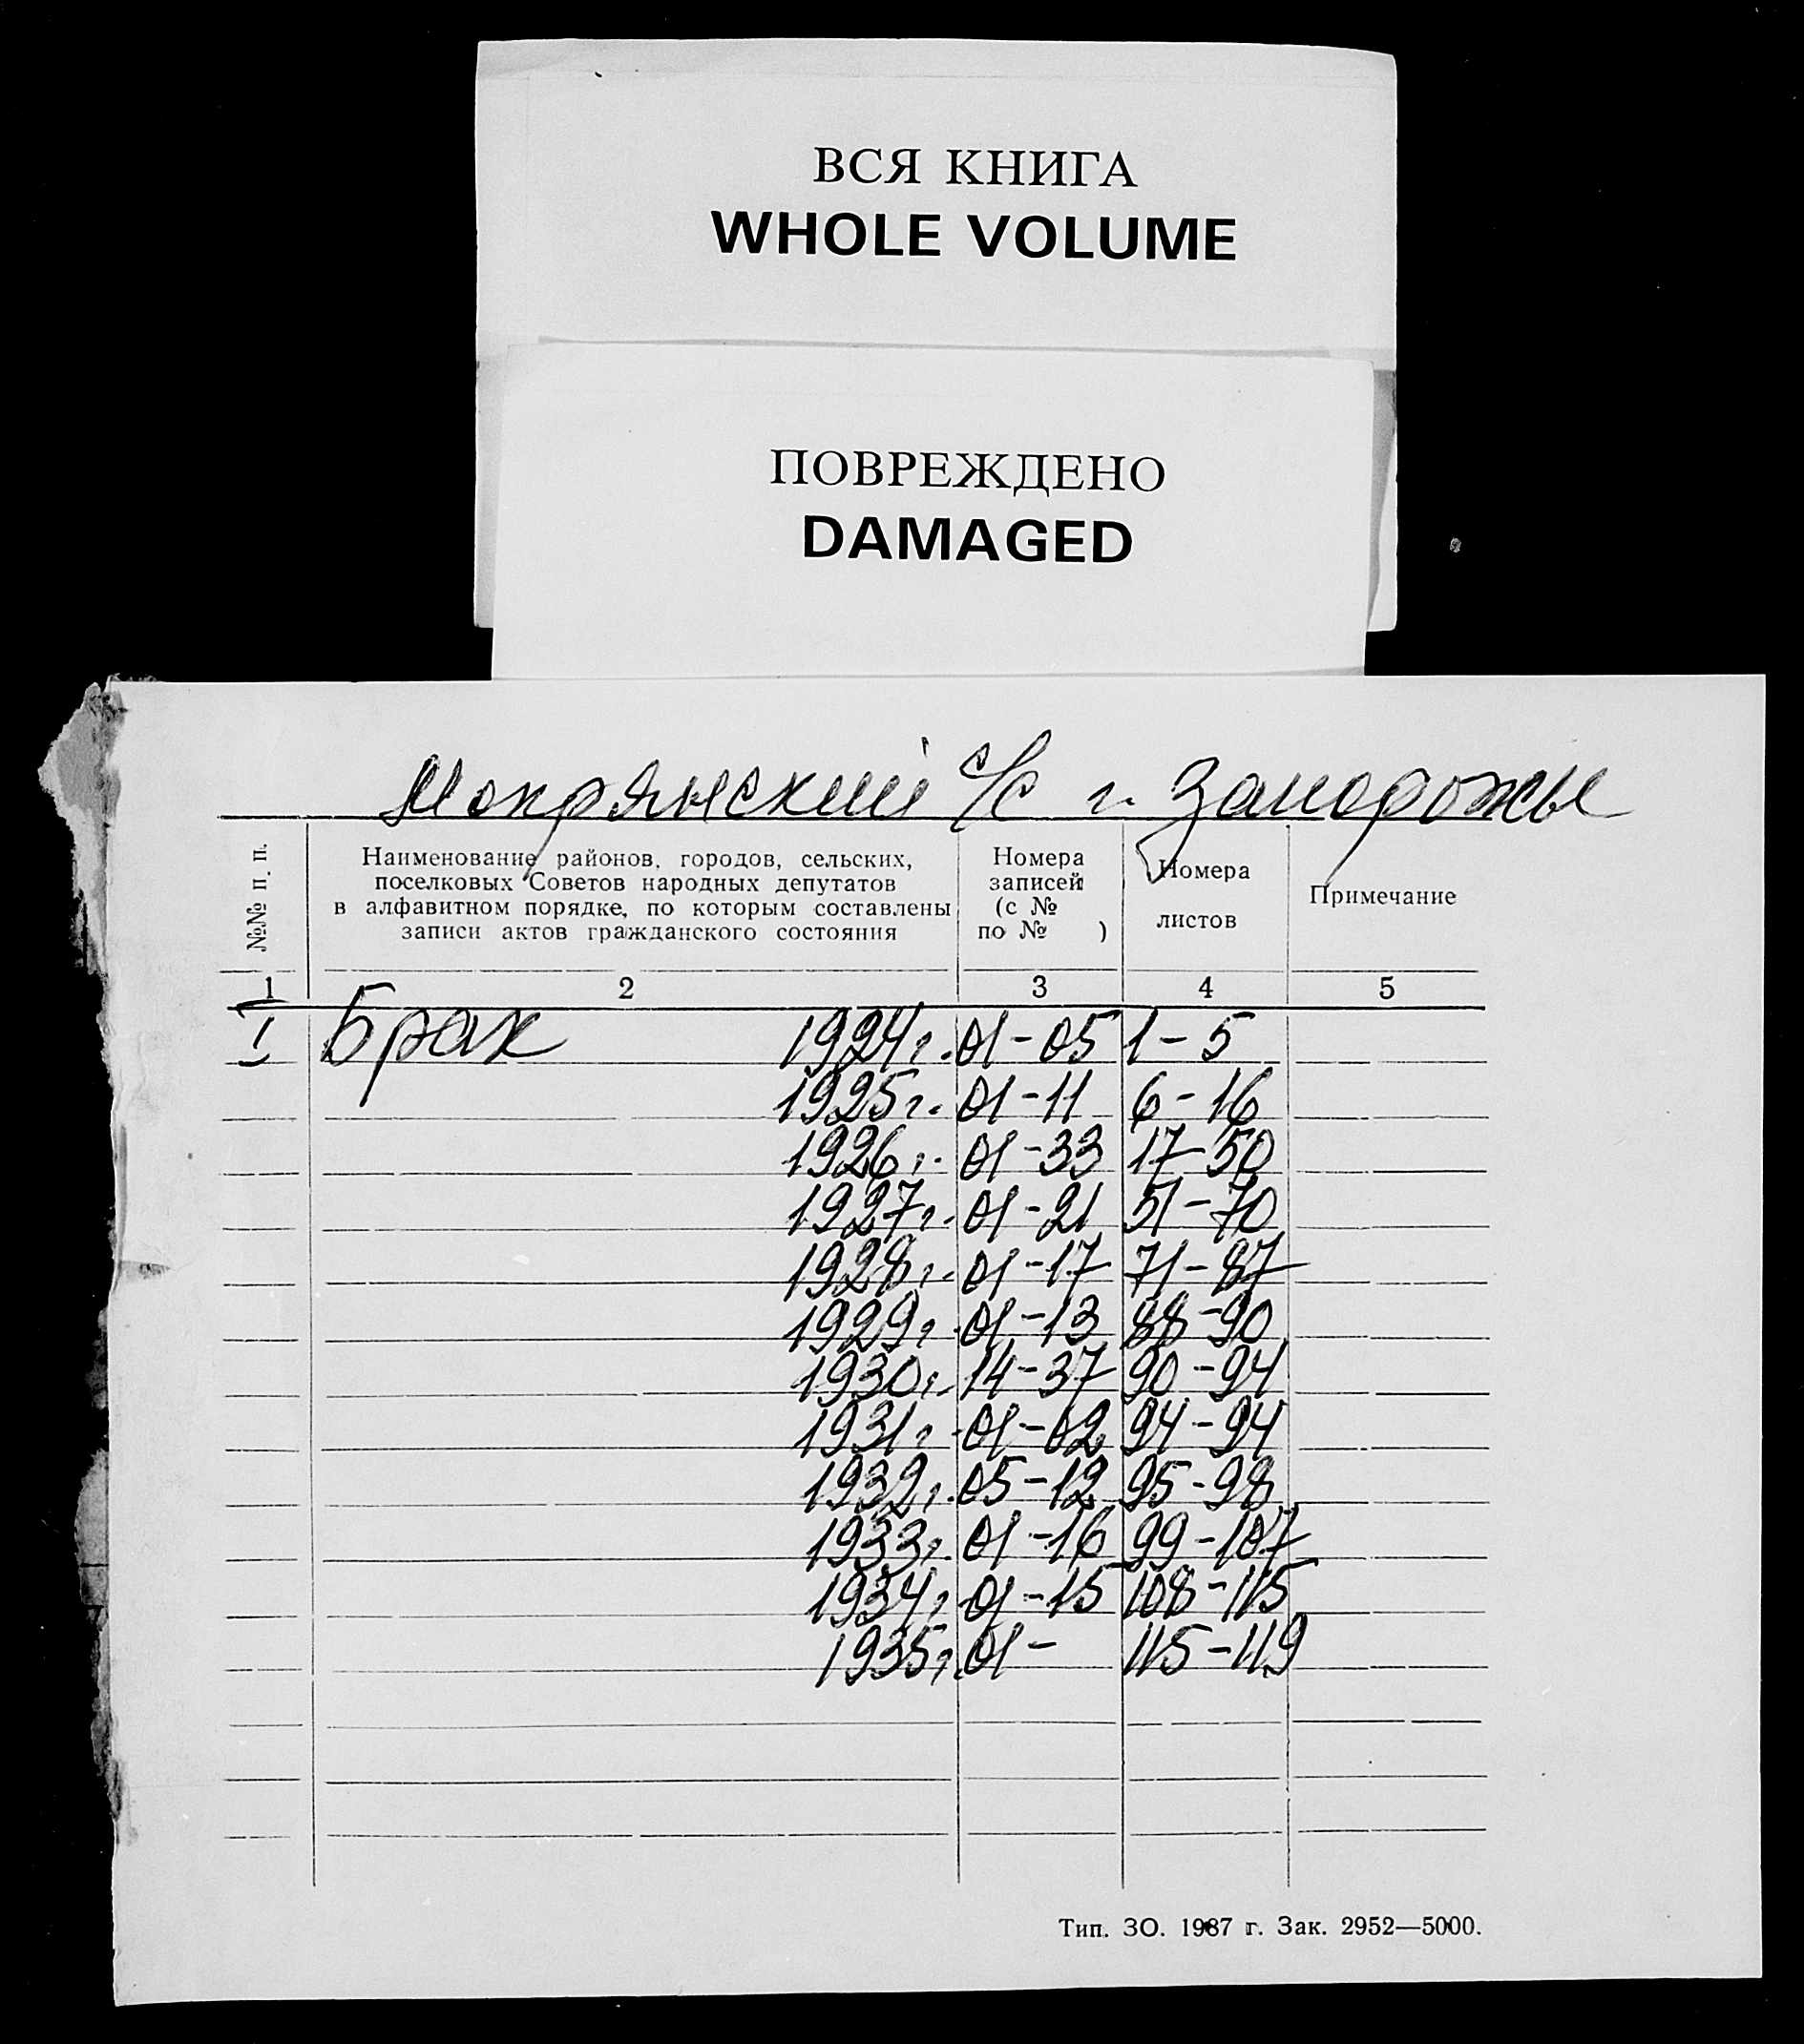 ВСЯ КНИГА
WHOLE VOLUME
ПОВРЕЖДЕНО
DAMAGED
Мокрянский с/с г. Запорожье
№№ п. п.
Наименование районов, городов, сельских,
поселковых Советов народных депутатов
в алфавитном порядке, по которым составлены
записи актов гражданского состояния
Номера
записей
(с №
по № )
Номера
листов
Примечание
1 2 3 4 5
I Брак 1924г. 01-05 1-5
1925г. 01-11 6-16
1926г. 01-33 17-50
1927г. 01-21 51-70
1928г. 01-17 71-87
1929г. 01-13 88-90
1930г. 14-37 90-94
1931г. 01-02 94-94
1932г. 05-12 95-98
1933г. 01-16 99-107
1934г. 01-15 108-115
1935г. 01- 115-119
Тип. ЗО. 1987 г. Зак. 2952—5000.